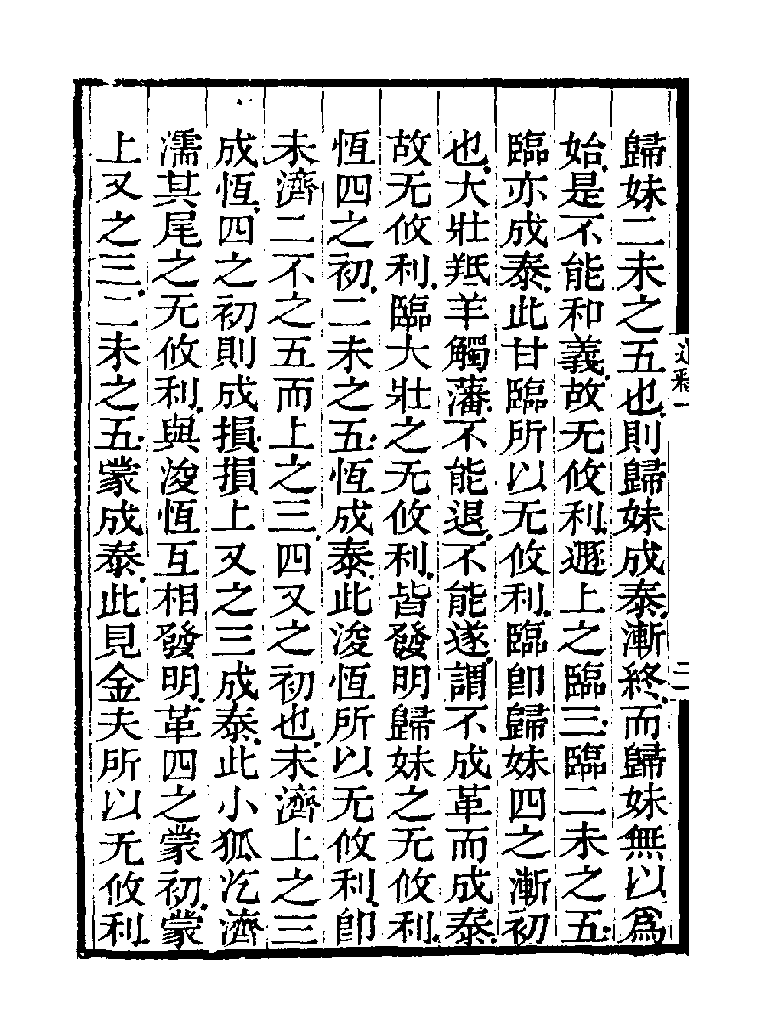 歸妹二未之五也則歸妹成泰漸終而歸妹無以爲
始是不能和義故无攸利遯上之臨三臨二未之五
臨亦成泰此甘臨所以无攸利臨卽歸妹四之漸初
也大壯羝羊觸藩不能退不能遂謂不成革而成泰
故无攸利臨大壯之无攸利皆發明歸妹之无攸利
恆四之初二未之五恆成泰此浚恆所以无攸利卽
未濟二不之五而上之三四又之初也未濟上之三
成恆四之初則成損損上又之三成泰此小狐汔濟
濡其尾之无攸利與浚恆互相發明革四之蒙初蒙
上又之三二未之五蒙成泰此見金夫所以无攸利
通釋一
二